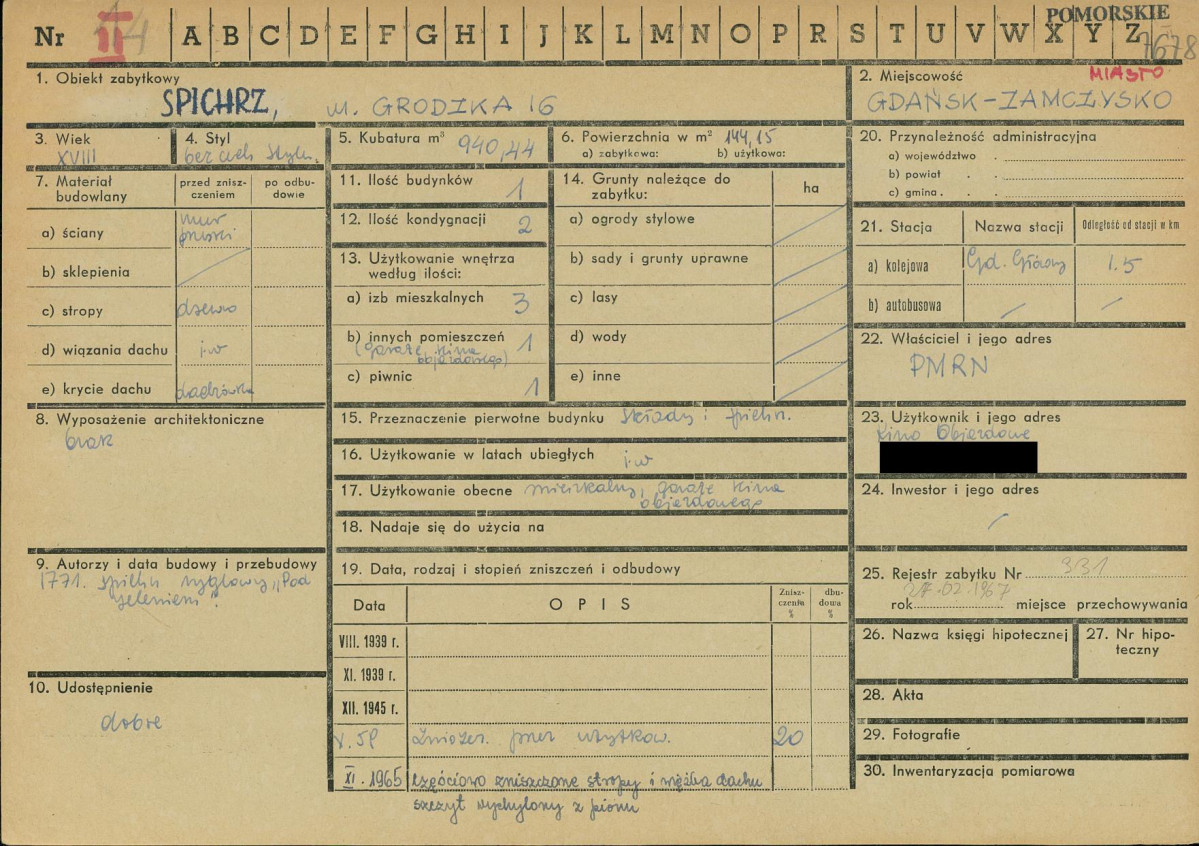 POMORSKIE
Nr II A B C D E F G H I J K L M N O P R S T U V W X Y Z 7678
1. Obiekt zabytkowy
SPICHRZ, ul. GRODZKA 16
2. Miejscowość MIASTO
GDAŃSK-ZAMCZYSKO
3. Wiek
XVIII
4. Styl
bez cech stylu.
5. Kubatura m³ 940,44
6. Powierzchnia w m² 144,15
a) zabytkowa: b) użytkowa:
20. Przynależność administracyjna
a) województwo
b) powiat
c) gmina
7. Materiał budowlany
przed zniszczeniem
po odbudowie
a) ściany mur pruski
b) sklepienia
c) stropy drewno
d) wiązania dachu j.w
e) krycie dachu dachówka
11. Ilość budynków 1
12. Ilość kondygnacji 2
13. Użytkowanie wnętrza
według ilości:
a) izb mieszkalnych 3
b) innych pomieszczeń 1
(garaże kina
objazdowego)
c) piwnic 1
14. Grunty należące do
zabytku: ha
a) ogrody stylowe
b) sady i grunty uprawne
c) lasy
d) wody
e) inne
21. Stacja Nazwa stacji Odległość od stacji w km
a) kolejowa Gd. Główny 1.5
b) autobusowa
22. Właściciel i jego adres
PMRN
8. Wyposażenie architektoniczne
brak
15. Przeznaczenie pierwotne budynku Składy i spichrz.
16. Użytkowanie w latach ubiegłych j.w
17. Użytkowanie obecne mieszkalny, garaże kina
objazdowego
18. Nadaje się do użycia na
23. Użytkownik i jego adres
Kino Objazdowe
24. Inwestor i jego adres
9. Autorzy i data budowy i przebudowy
1771. spichrz ryglowy "Pod
jeleniem".
19. Data, rodzaj i stopień zniszczeń i odbudowy
Data OPIS Zniszczenia % dbudowa %
VIII. 1939 r.
XI. 1939 r.
XII. 1945 r.
V. 59 Zniszcz. przez użytkow. 20
XI. 1965 częściowo zniszczone stropy i więźba dachu
szczyt wychylony z pionu
25. Rejestr zabytku Nr 331
27.02.1967
rok miejsce przechowywania
26. Nazwa księgi hipotecznej
27. Nr hipoteczny
10. Udostępnienie
dobre
28. Akta
29. Fotografie
30. Inwentaryzacja pomiarowa